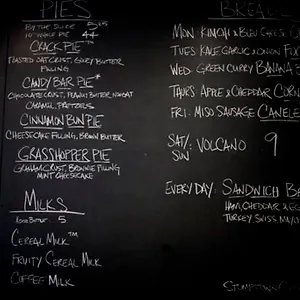 PIES
BY THE SLICE 5.25
10" WHOLE PIE 44
CRACK PIE™
TOASTED OAT CRUST, GOOEY BUTTER
FILLING
CANDY BAR PIE*
CHOCOLATE CRUST, PEANUT BUTTER NOUGAT
CARAMEL, PRETZELS
CINNAMON BUN PIE
CHEESECAKE FILLING, BROWN BUTTER
GRASSHOPPER PIE
GRAHAM CRUST, BROWNIE FILLING
MINT CHEESECAKE
MILKS
BOTTLE 5
CEREAL MILK™
FRUITY CEREAL MILK
COFFEE MILK
BREA
MON: KIMCHI & BLEU CHEESE
TUES: KALE GARLIC & ONION
WED: GREEN CURRY BANANA
THURS: APPLE & CHEDDAR
FRI: MISO SAUSAGE CANELE
SAT/
SUN VOLCANO 9
EVERY DAY: SANDWICH B
HAM, CHEDDAR & EG
TURKEY, SWISS, MAYO
STUMPTOWN